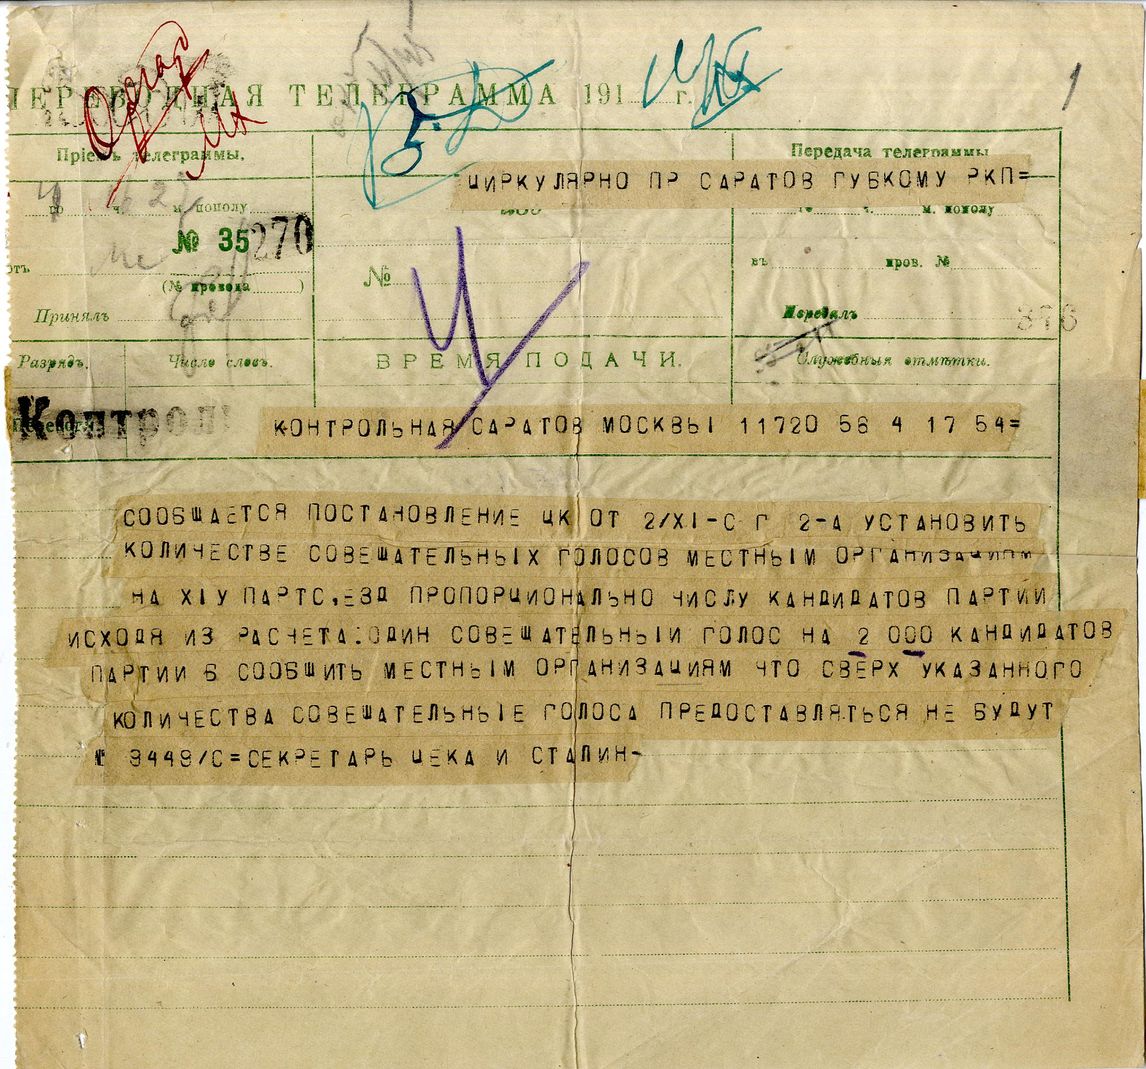 ПЕРЕВОДНАЯ ТЕЛЕГРАММА 191 г.
1
Пріемъ телеграммы.
Передача телеграммы
ЦИРКУЛЯРНО ПР САРАТОВ ГУБКОМУ РКП=
м. пополу
ч. м. пополу
№ 35
270
отъ
(№ провода )
№
въ пров. №
Принялъ
Передалъ
376
Разрядъ.
Число словъ.
ВРЕМЯ ПОДАЧИ.
Служебныя отмѣтки.
Контроль
КОНТРОЛЬНАЯ САРАТОВ МОСКВЫ 11720 58 4 17 54=
СООБЩАЕТСЯ ПОСТАНОВЛЕНИЕ ЦК ОТ 2/XI-С Г 2-А УСТАНОВИТЬ
КОЛИЧЕСТВЕ СОВЕЩАТЕЛЬНЫХ ГОЛОСОВ МЕСТНЫМ ОРГАНИЗАЦИЯМ
НА XIУ ПАРТС,ЕЗД ПРОПОРЦИОНАЛЬНО ЧИСЛУ КАНДИДАТОВ ПАРТИИ
ИСХОДЯ ИЗ РАСЧЕТА:ОДИН СОВЕЩАТЕЛЬНЫЙ ГОЛОС НА 2 000 КАНДИДАТОВ
ПАРТИИ Б СООБЩИТЬ МЕСТНЫМ ОРГАНИЗАЦИЯМ ЧТО СВЕРХ УКАЗАННОГО
КОЛИЧЕСТВА СОВЕЩАТЕЛЬНЫЕ ГОЛОСА ПРЕДОСТАВЛЯТЬСЯ НЕ БУДУТ
№ 9449/С=СЕКРЕТАРЬ ЦЕКА И СТАЛИН-